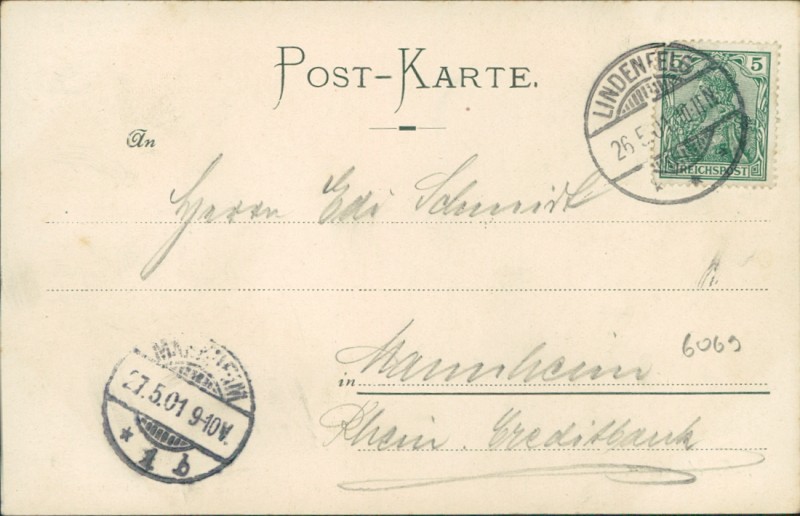 POST-KARTE.
LINDENFELS
26.5.01
5
REICHSPOST
An
Herrn Edi Schmidt
6069
in Mannheim
Rhein. Creditbank
MANNHEIM
27.5.01 9-10V.
* 1 b